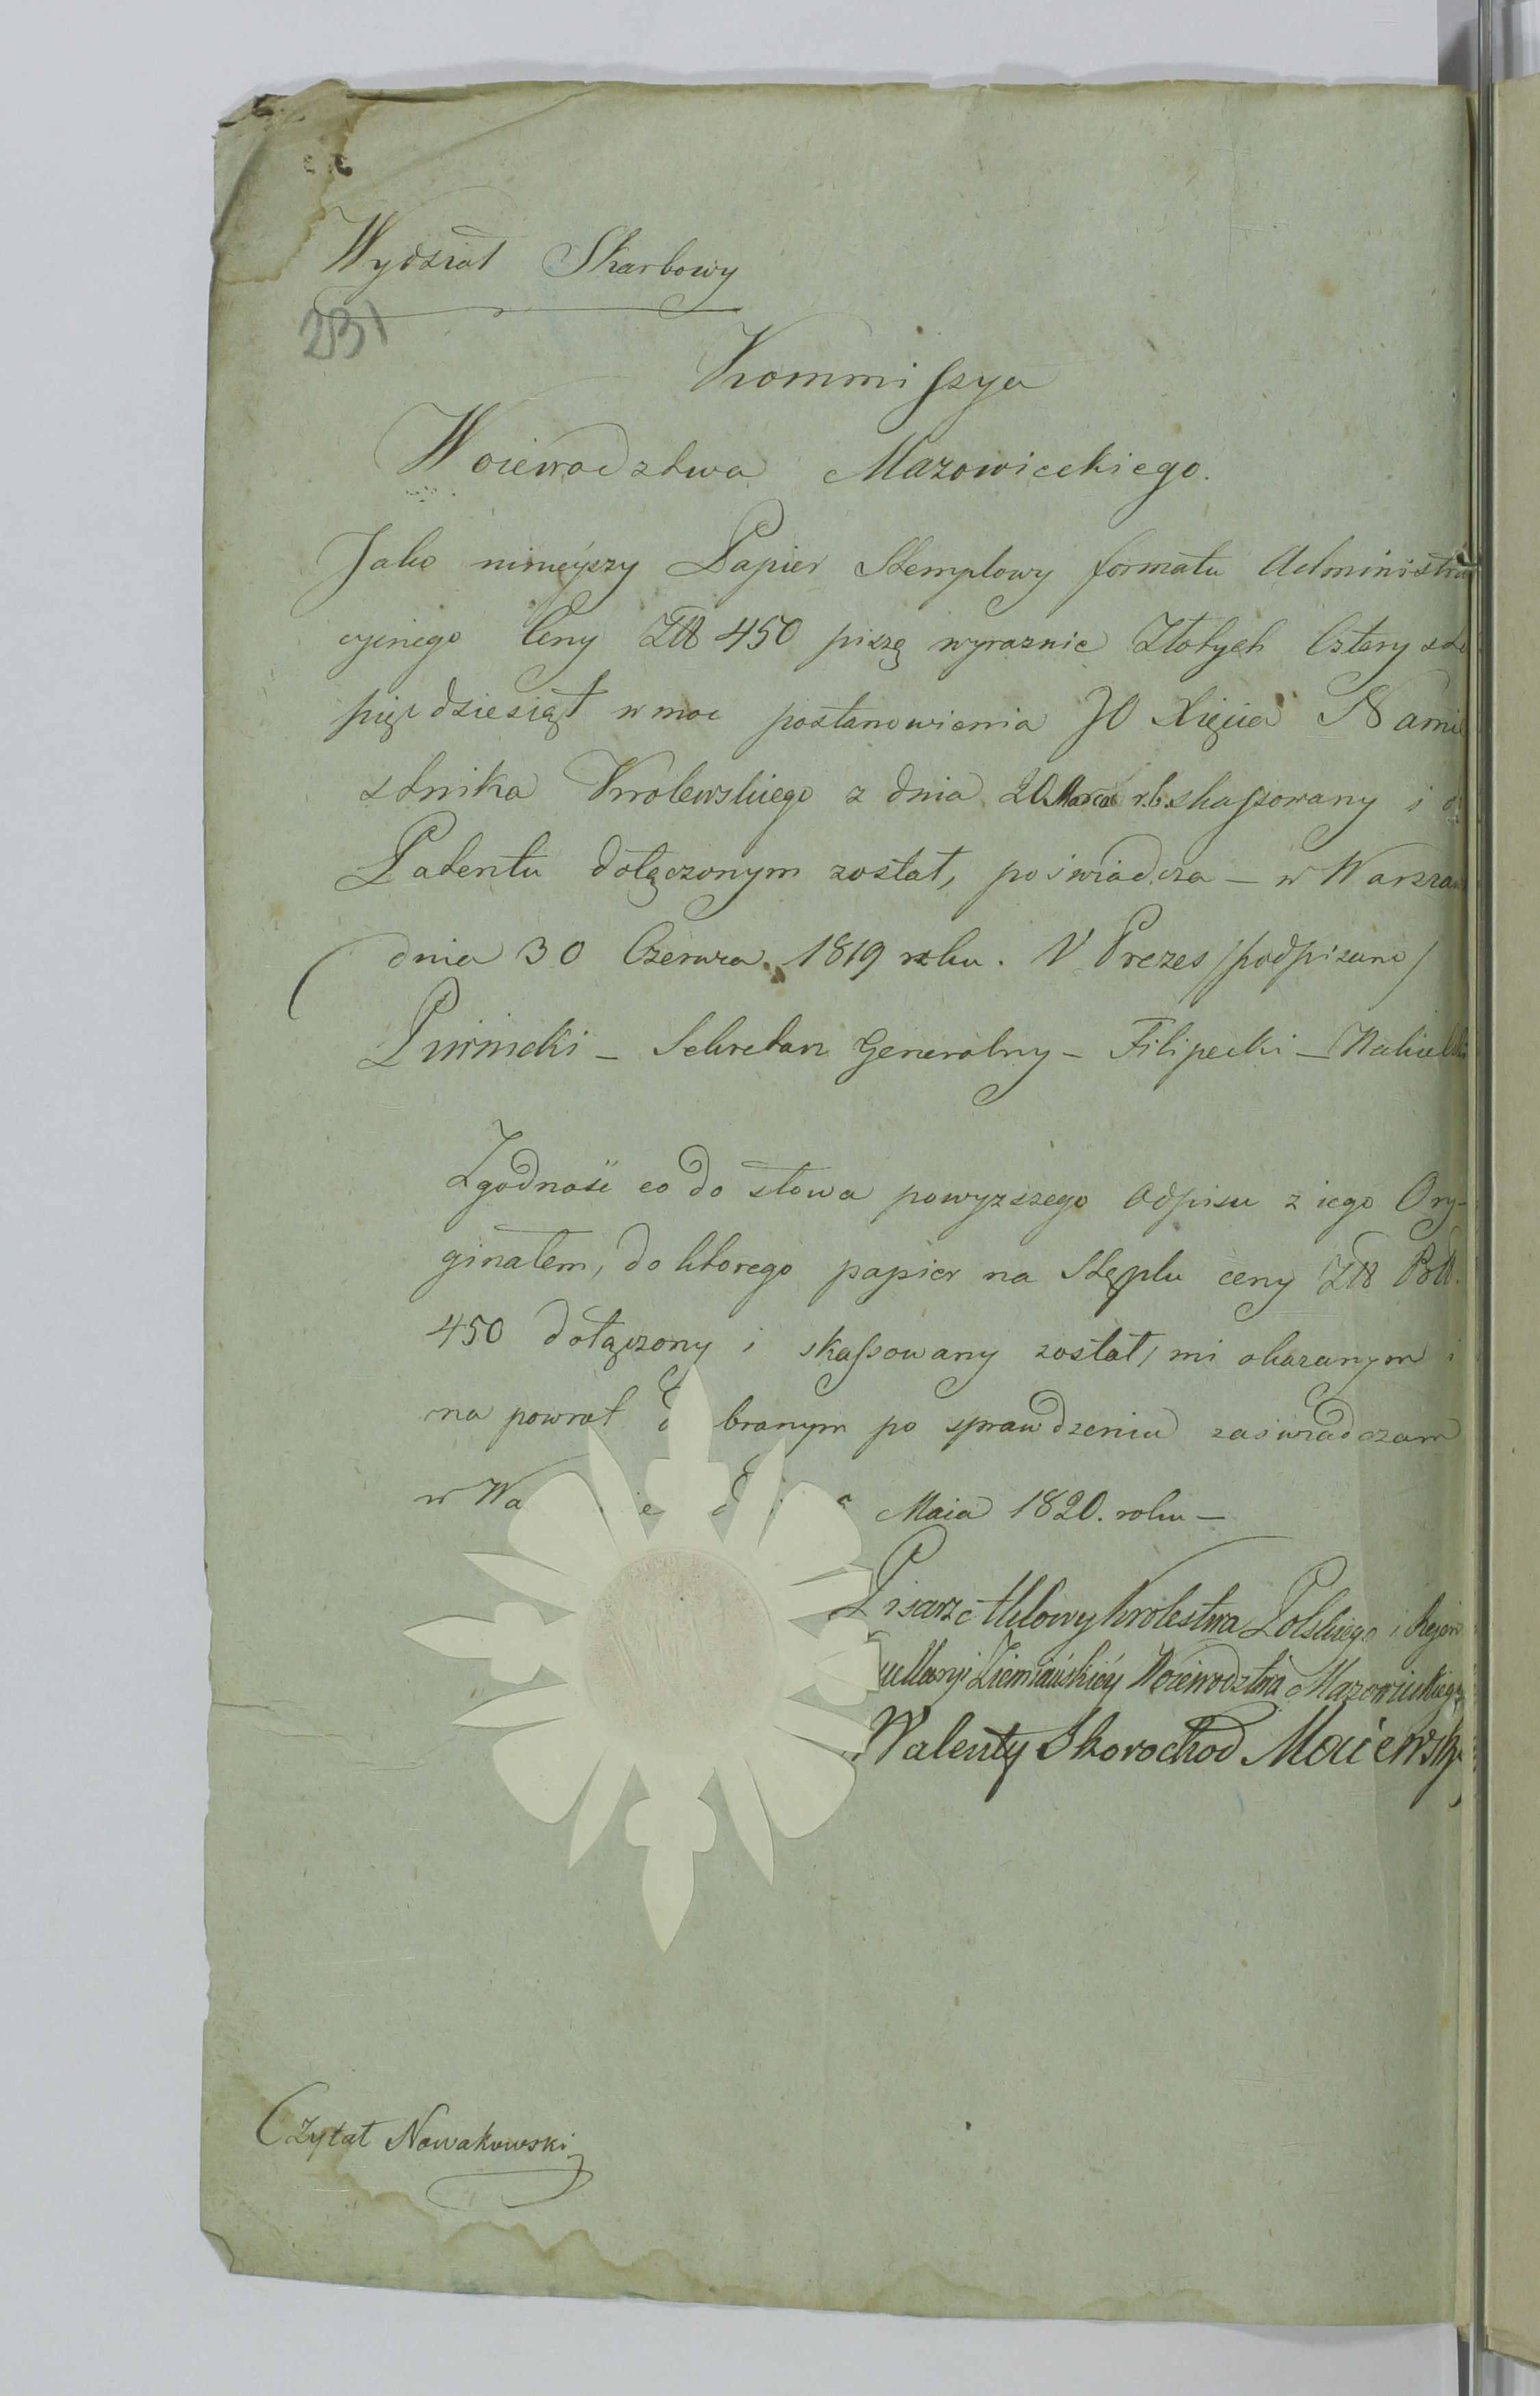 Wydział Skarbowy
231
Kommissya
Woiewodztwa Mazowieckiego.
Jako ninieyszy Papier Stemplowy formatu Administra
cyinego Ceny Złł 450 piszę wyraznie Złotych Cztery sta
pięćdziesiąt w moc postanowienia JO Xięcia Namie
stnika Krolewskiego z dnia 20 Marca r.b. skassowany i
Patentu dołączonym został, poświadcza – w Warszaw
dnia 30 Czerwca 1819 roku. V Prezes /podpisano/
Sekretarz Generalny – Filipecki –
Zgodność co do słowa powyzszego Odpisu z iego Ory-
ginałem, do ktorego papier na Stęplu ceny Złł Poll.
450 dołączony i skassowany został, mi okazanym i
na powrot branym po sprawdzeniu zaswiadczam
w Wa Maia 1820. roku –
Pisarz Aktowy Krolestwa Polskiego i Rejen
Ziemiańskiéy Woiewodztwa Mazowieckiego
Walenty Skorochod Maiewski
Czytał Nowakowski